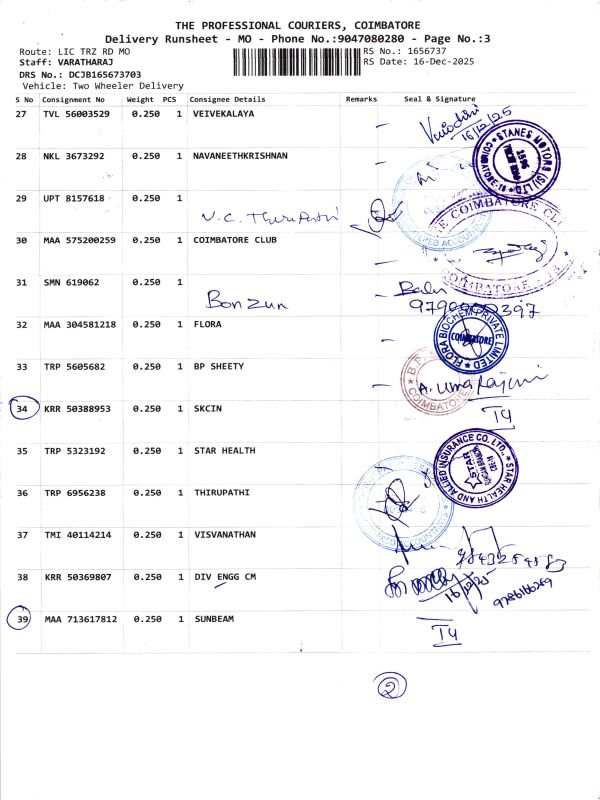 THE PROFESSIONAL COURIERS, COIMBATORE
Delivery Runsheet - MO - Phone No.:9047080280 - Page No.:3
Route: LIC TRZ RD MO
RS No.: 1656737
Staff: VARATHARAJ
RS Date: 16-Dec-2025
DRS No.: DCJB165673703
Vehicle: Two Wheeler Delivery
S No Consignment No Weight PCS Consignee Details Remarks Seal & Signature
27 TVL 56003529 0.250 1 VEIVEKALAYA
16/12/25
28 NKL 3673292 0.250 1 NAVANEETHKRISHNAN
STANES MOTORS(S) LTD COIMBATORE-18
29 UPT 8157618 0.250 1
V.C. Thirupathi
30 MAA 575200259 0.250 1 COIMBATORE CLUB
THE COIMBATORE CLUB
COIMBATORE
31 SMN 619062 0.250 1
Bonzun
32 MAA 304581218 0.250 1 FLORA
FLORA BIOCHEM PRIVATE LIMITED
COIMBATORE
33 TRP 5605682 0.250 1 BP SHEETY
COIMBATORE
34 KRR 50388953 0.250 1 SKCIN
T4
35 TRP 5323192 0.250 1 STAR HEALTH
STAR HEALTH AND ALLIED INSURANCE CO. LTD.,
STAR
36 TRP 6956238 0.250 1 THIRUPATHI
37 TMI 40114214 0.250 1 VISVANATHAN
38 KRR 50369807 0.250 1 DIV ENGG CM
16/12/25
39 MAA 713617812 0.250 1 SUNBEAM
T4
2